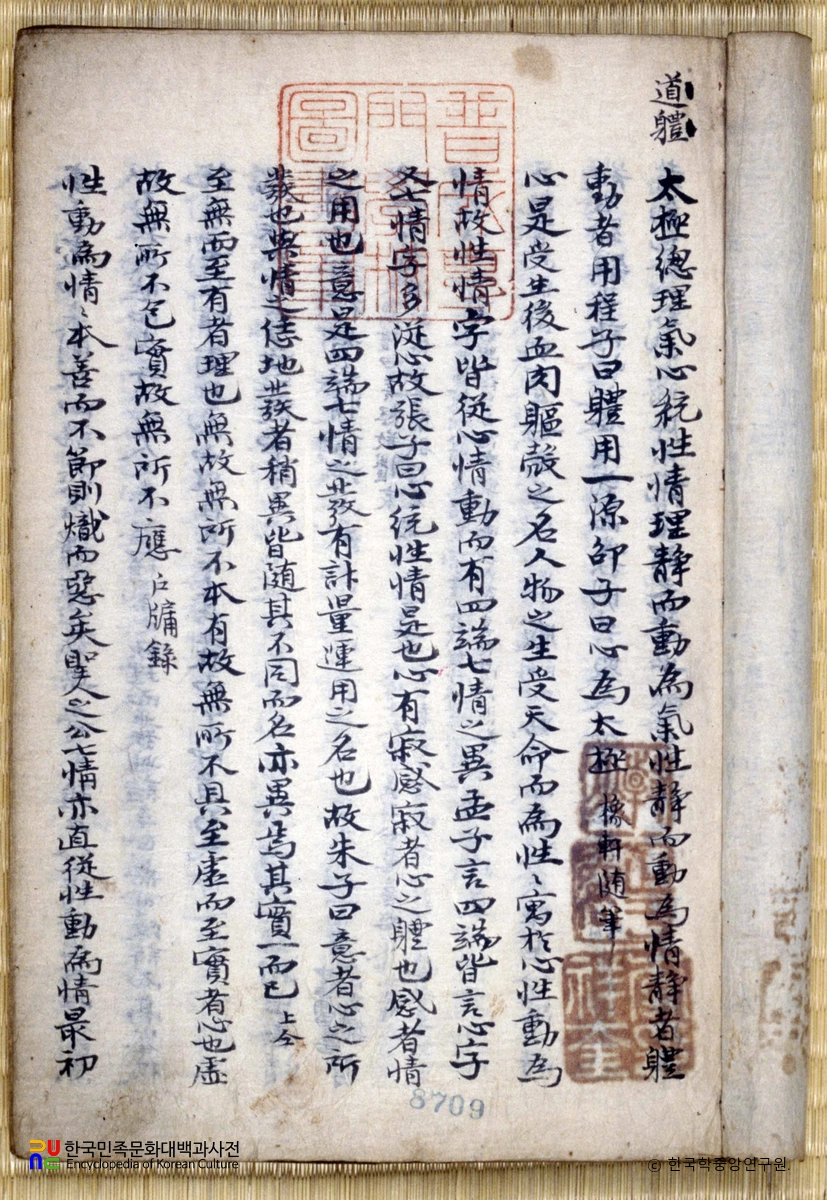 道軆
太極總理氣心統性情理靜而動為氣性靜而動為情靜者軆
動者用程子曰軆用一源邵子曰心為太極 橡軒随筆
心是受生後血肉軀殼之名人物之生受天命而為性〻寓於心性動為
情故性情字皆從心情動而有四端七情之異孟子言四端皆言心字
又七情字多從心故張子曰心統性情是也心有寂感寂者心之軆也感者情
之用也意是四端七情之發有計量運用之名也故朱子曰意者心之所
發也與情之恁地發者稍異皆随其不同而名亦異焉其實一而已 上仝
至無而至有者理也無故無所不本有故無所不具至虛而至實者心也虛
故無所不包實故無所不應 戶牖錄
性動為情〻本善而不節則熾而惡矣聖人之公七情亦直從性動為情最初
8709
한국민족문화대백과사전
Encyclopedia of Korean Culture
© 한국학중앙연구원.